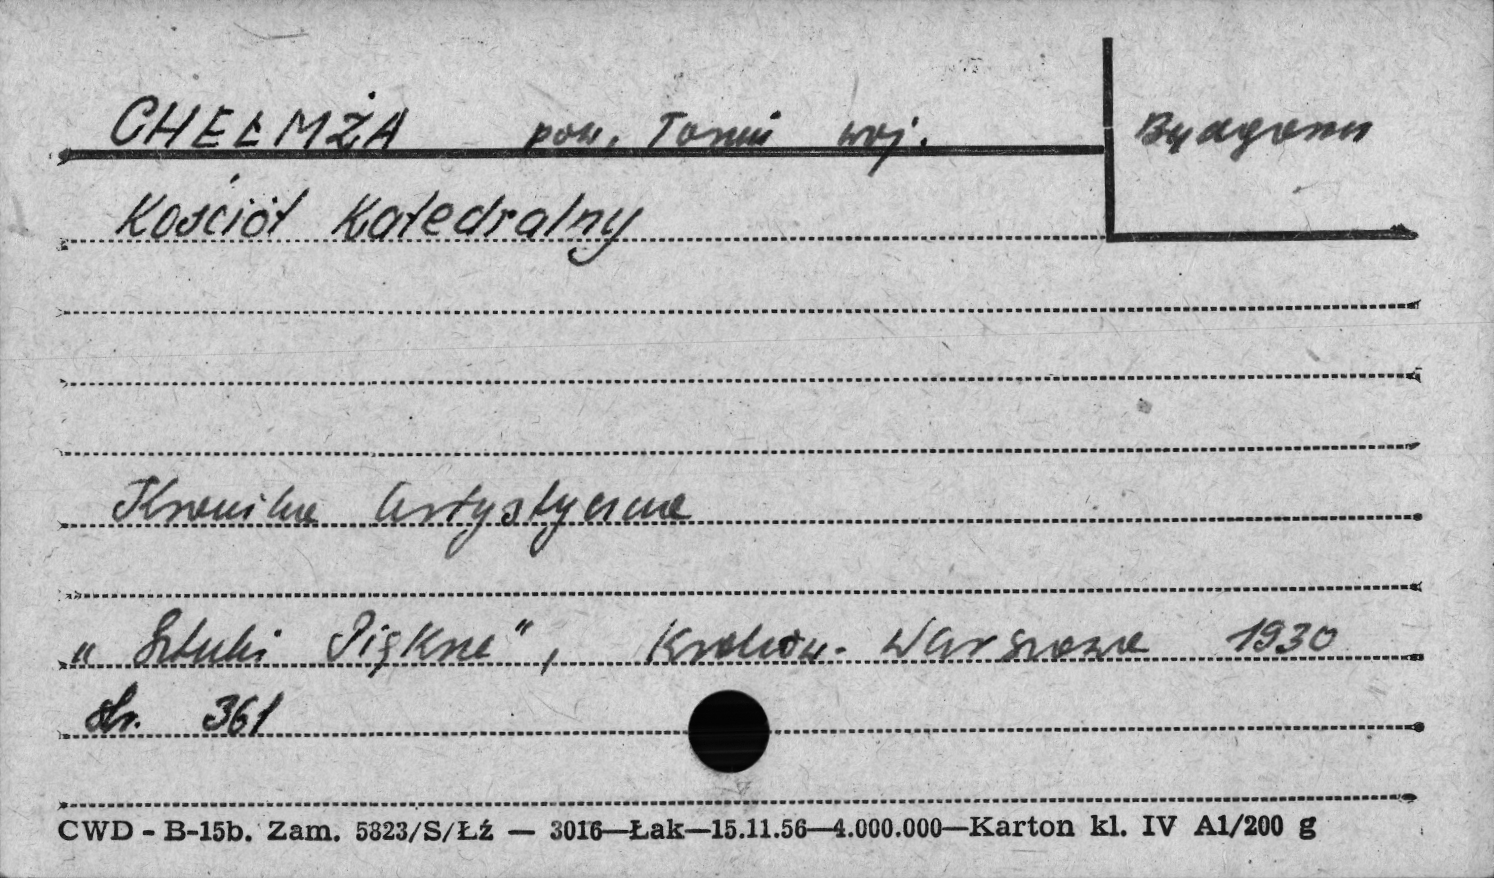 CHEŁMŻA pow. Toruń woj. Bydgoszcz
Kościół Katedralny
Kronika artystyczna
„Sztuki Piękne", Kraków-Warszawa 1930
str. 361
CWD - B-15b. Zam. 5823/S/Łź — 3016—Łak—15.11.56—4.000.000—Karton kl. IV A1/200 g